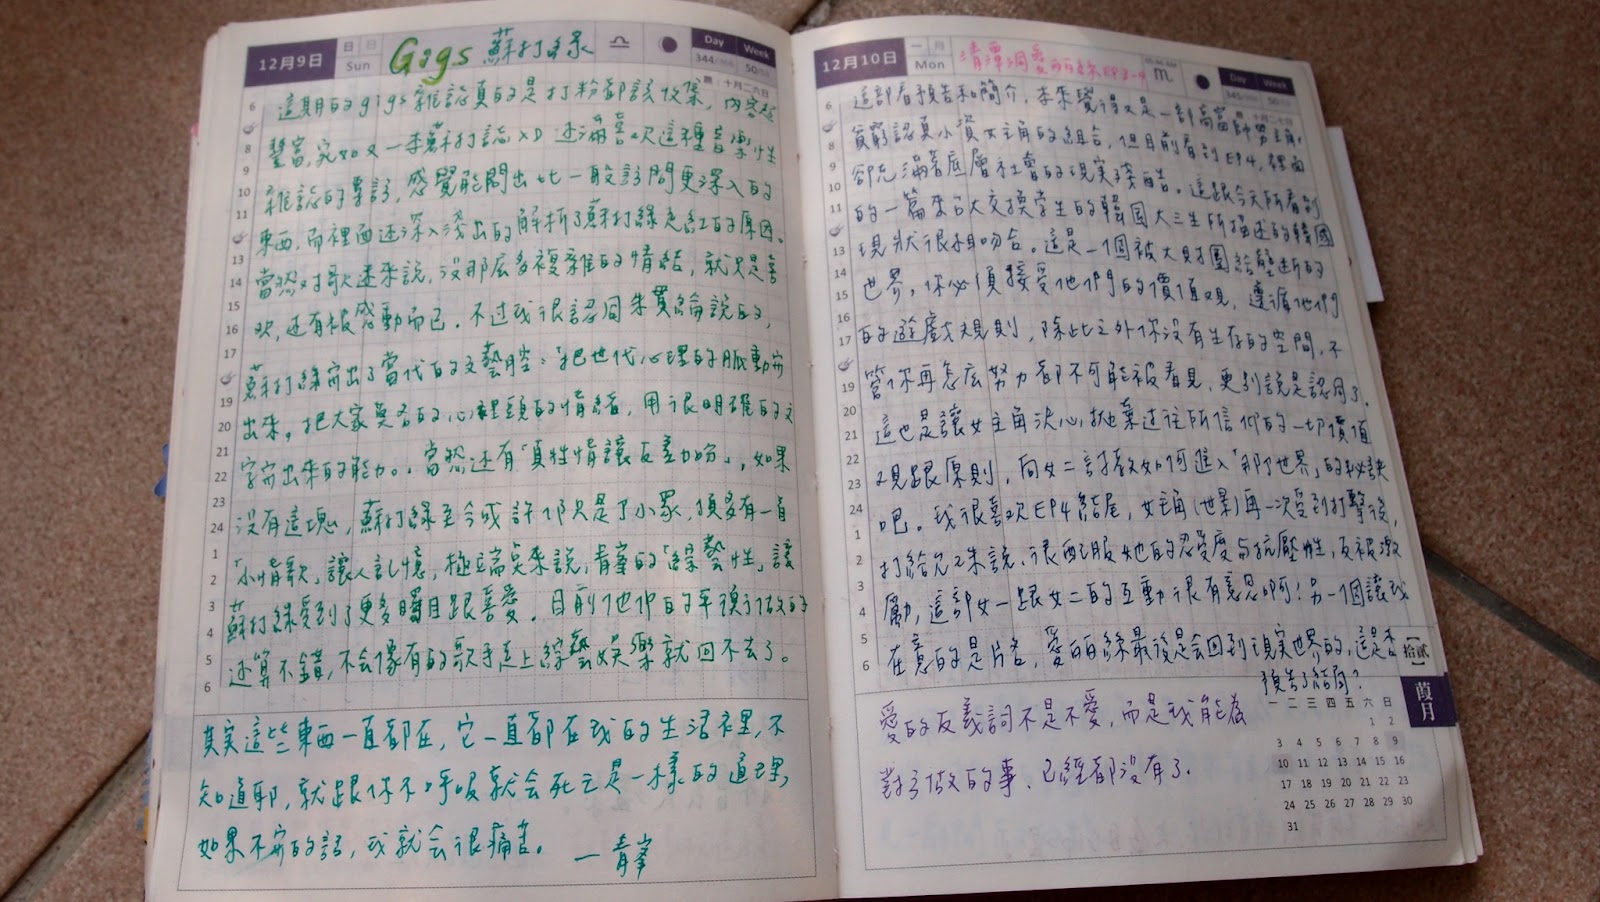 12月9日
日 日
Sun
Gigs 蘇打綠
Day Week
344/366 50/53
農 十月二六日
這期的gigs雜誌真的是打粉都該收集，內容超
豐富，宛如又一本蘇打誌XD 还滿喜欢這種音樂性
雜誌的專訪，感覺能問出比一般訪問更深入的
東西，而裡面还深入淺出的解析了蘇打綠走紅的原因。
當然对歌迷來說，沒那麼多複雜的情結，就只是喜
欢，还有被感動而已．不过我很認同朱貫綸說的，
蘇打綠寫出了當代的文藝腔：「把世代心理的脈動寫
出來，把大家莫名的心裡頭的情緒，用很明確的文
字寫出來的能力。」當然还有「真性情讓反差加分」，如果
沒有這塊，蘇打綠至今或許卻只是个小眾，頂多有一首
「小情歌」讓人記憶，極端點來說，青峯的「綜藝性」讓
蘇打綠受到了更多矚目跟喜愛．目前他們的平衡做的
还算不錯，不会像有的歌手走上綜藝娛樂就回不去了。
其实這些東西一直都在，它一直都在我的生活裡，不
知道耶，就跟你不呼吸就会死亡是一樣的道理，
如果不寫的話，我就会很痛苦．
— 青峯
12月10日
一 月
Mon
清潭洞愛麗絲EP3-4
Day Week
345/366 50/53
農 十月二七日
這部看預告和簡介，本來覺得又是一部高富帥男主角，
貧窮認真小資女主角的組合，但目前看到EP4，裡面
卻充滿著底層社會的現实殘酷。這跟今天所看到
的一篇來台大交換學生的韓国大三生所描述的韓國
現狀很相吻合。這是一個被大財團給壟断的
世界，你必須接受他們的價值观，遵循他們
的遊戲規則，除此之外你沒有生存的空間，不
管你再怎麼努力都不可能被看見，更別說是認同了．
這也是讓女主角決心拋棄过往所信仰的一切價值
观跟原則，向女二討教如何進入「那个世界」的秘訣
吧。我很喜欢EP4結尾，女主角(世景)再一次受到打擊後，
打給允珠說，很配服她的忍受度与抗壓性，反被激
勵，這部女一跟女二的互動很有意思啊！另一個讓我
在意的是片名，愛麗絲最後是会回到現实世界的，這是否
預告了結局？
愛的反義詞不是不愛，而是我能為
對方做的事，已經都沒有了．
【拾貳】
葭月
一 二 三 四 五 六 日
1 2
3 4 5 6 7 8 9
10 11 12 13 14 15 16
17 18 19 20 21 22 23
24 25 26 27 28 29 30
31